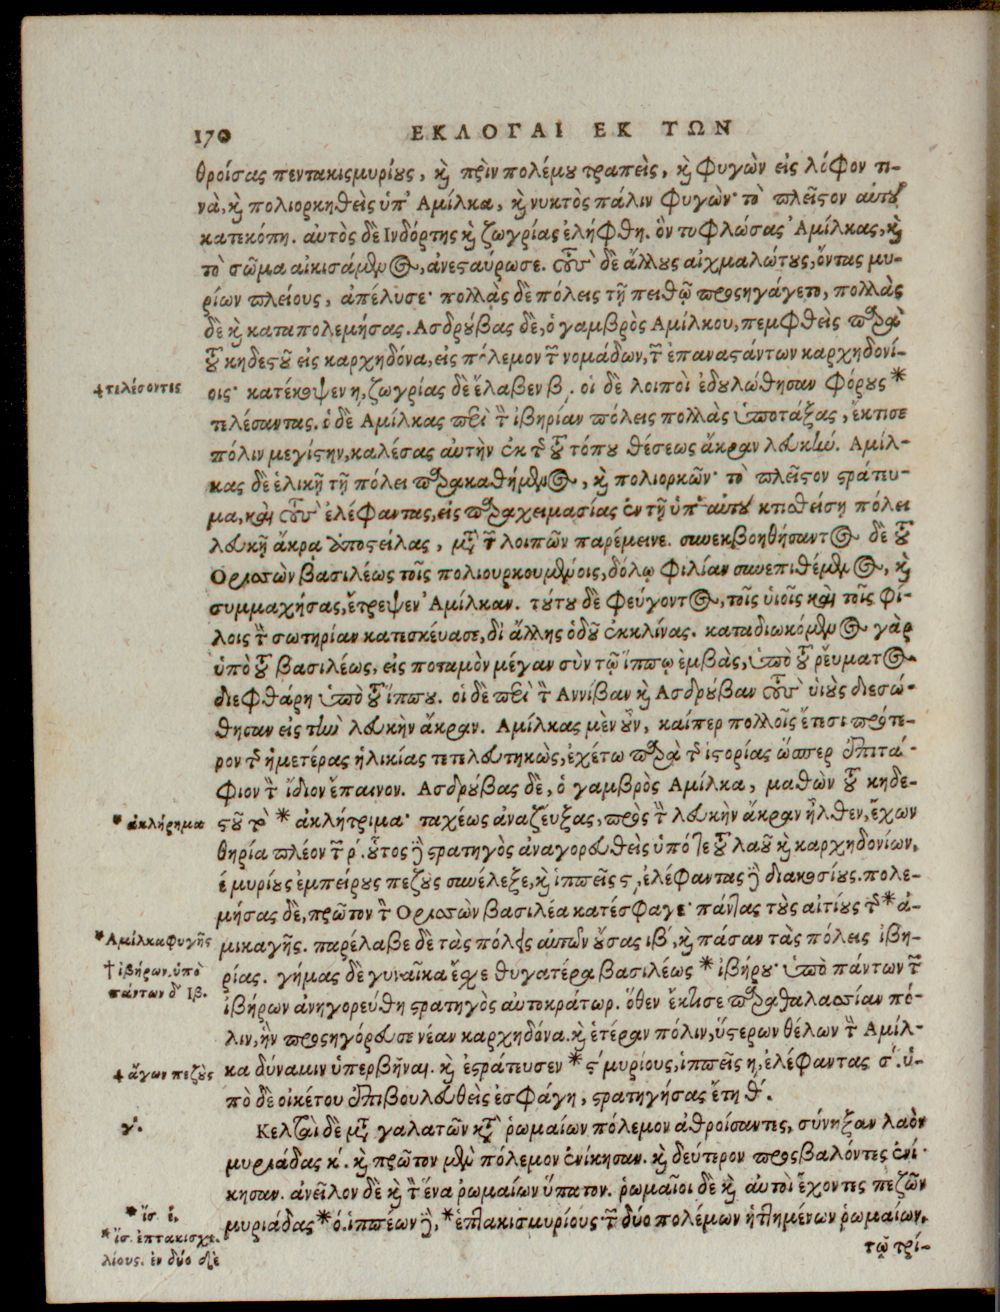 170 ΕΚΛΟΓΑΙ ΕΚ ΤΩΝ
θροίσας πεντακιςμυρίους, καὶ πρὶν πολέμου τραπεὶς, καὶ φυγὼν εἰς λόφον τι-
νὰ, καὶ πολιορκηθεὶς ὑπ' Αμίλκα, καὶ νυκτὸς πάλιν φυγὼν· τὸ πλεῖστον αὐτοῦ
κατεκόπη. αὐτὸς δὲ Ινδόρτης καὶ ζωγρίας ἐλήφθη. ὃν τυφλώσας Ἀμίλκας, καὶ
τὸ σῶμα αἰκισάμενος, ἀνεσταύρωσε. τοὺς δὲ ἄλλους αἰχμαλώτους, ὄντας μυ-
ρίων πλείους, ἀπέλυσε· πολλὰς δὲ πόλεις τῇ πειθῷ προςηγάγετο, πολλὰς
δὲ καὶ καταπολεμήσας. Ασδρούβας δὲ, ὁ γαμβρὸς Αμίλκου, πεμφθεὶς παρὰ
τοῦ κηδεστοῦ εἰς καρχηδόνα, εἰς πόλεμον τῶν νομάδων, τῶν ἐπαναστάντων καρχηδονί-
τελέσοντες
οις· κατέκοψεν η, ζωγρίας δὲ ἔλαβεν β. οἱ δὲ λοιποὶ ἐδουλώθησαν φόρους *
τελέσαντας. ὁ δὲ Αμίλκας περὶ τὴν ἰβηρίαν πόλεις πολλὰς ὑποτάξας, ἔκτισε
πόλιν μεγίστην, καλέσας αὐτὴν ἐκ τῆς τοῦ τόπου θέσεως ἄκραν λευκήν. Αμίλ-
κας δὲ ἑλικῇ τῇ πόλει παρακαθήμενος, καὶ πολιορκῶν· τὸ πλεῖστον στράτευ-
μα, καὶ τοὺς ἐλέφαντας, εἰς παραχειμασίας ἐν τῇ ὑπ' αὐτοῦ κτισθείσῃ πόλει
λευκῇ ἄκρᾳ ἀποστείλας, μετὰ τῶν λοιπῶν παρέμεινε. συνεκβοηθήσαντος δὲ τοῦ
Ορισσῶν βασιλέως τοῖς πολιουρκουμένοις, δόλῳ φιλίαν συνεπιθέμενος, καὶ
συμμαχήσας, ἔτρεψεν Ἀμίλκαν. τούτου δὲ φεύγοντος, τοῖς υἱοῖς καὶ τοῖς φί-
λοις τὴν σωτηρίαν κατεσκεύασε, δι' ἄλλης ὁδοῦ ἐκκλίνας. καταδιωκόμενος γὰρ
ὑπὸ τοῦ βασιλέως, εἰς ποταμὸν μέγαν σὺν τῷ ἵππῳ ἐμβὰς, ὑπὸ τοῦ ῥεύματος
διεφθάρη ὑπὸ τοῦ ἵππου. οἱ δὲ περὶ τὴν Αννίβαν καὶ Ασδρούβαν τοὺς υἱοὺς διεσώ-
θησαν εἰς τὴν λευκὴν ἄκραν. Αμίλκας μὲν οὖν, καίπερ πολλοῖς ἔτεσι πρότε-
ρον τῆς ἡμετέρας ἡλικίας τετελευτηκὼς, ἐχέτω παρὰ τῆς ἱστορίας ὥσπερ ἐπιτά-
φιον τὸν ἴδιον ἔπαινον. Ασδρούβας δὲ, ὁ γαμβρὸς Αμίλκα, μαθὼν τοῦ κηδε-
* ἀκλήρημα
στοῦ τὸ * ἀκλήτριμα· ταχέως ἀναζεύξας, πρὸς τὴν λευκὴν ἄκραν ἦλθεν, ἔχων
θηρία πλέον τῶν ρ. οὗτος δὲ στρατηγὸς ἀναγορευθεὶς ὑπό τε τοῦ λαοῦ καὶ καρχηδονίων,
έ μυρίους ἐμπείρους πεζοὺς συνέλεξε, καὶ ἱππεῖς ς, ἐλέφαντας δὲ διακοσίους. πολε-
μήσας δὲ, πρῶτον τὸν Ορισσῶν βασιλέα κατέσφαγε· πάντας τοὺς αἰτίους τῆς * ἀ-
* Αμίλκα φυγῆς
μικαγῆς. παρέλαβε δὲ τὰς πόλεις αὐτῶν οὔσας ιβ', καὶ πάσαν τὰς πόλεις ἰβη-
† ἰβήρων. ὑπὸ
πάντων δ' Ιβ.
ρίας. γήμας δὲ γυναῖκα ἔσχε θυγατέρα βασιλέως * ἰβήρου· ὑπὸ πάντων τῶν
ἰβήρων ἀνηγορεύθη στρατηγὸς αὐτοκράτωρ. ὅθεν ἔκτισε παραθαλασσίαν πό-
λιν, ἣν προςηγόρευσε νέαν καρχηδόνα. καὶ ἑτέραν πόλιν, ὕστερων θέλων τὴν Αμίλ-
4 ἄγων πεζοὺς
κα δύναμιν ὑπερβῆναι. καὶ ἐστράτευσεν * ς' μυρίους, ἱππεῖς η, ἐλέφαντας σ'. ὑ-
πὸ δὲ οἰκέτου ἐπιβουλευθεὶς ἐσφάγη, στρατηγήσας ἔτη θ'.
γ'.
Κελταὶ δὲ μετὰ γαλατῶν κατὰ ῥωμαίων πόλεμον ἀθροίσαντες, σύνηξαν λαὸν
μυριάδας κ'. καὶ πρῶτον μὲν πόλεμον ἐνίκησαν. καὶ δεύτερον προςβαλόντες ἐνί-
κησαν. ἀνεῖλον δὲ καὶ τὸν ἕνα ῥωμαίων ὕπατον. ῥωμαῖοι δὲ καὶ αὐτοὶ ἔχοντες πεζῶν
* ἴσ. έ.
* ἴσ. ἑπτακισχι-
λίους. ἐν δύο δὲ
μυριάδας * ό. ἱππέων δὲ, * ἑπτακισμυρίους· τῶν δύο πολέμων ἡττημένων ῥωμαίων,
τῷ τρί-